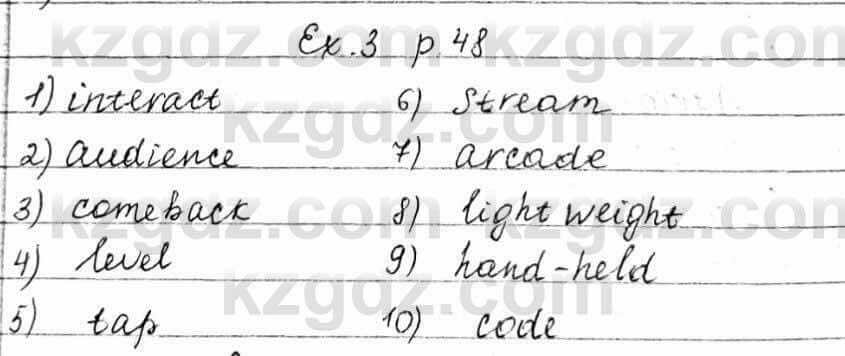 Ex. 3 p. 48
1) interact 6) stream
2) audience 7) arcade
3) comeback 8) light weight
4) level 9) hand-held
5) tap 10) code
kzgdz.com kzgdz.com
kzgdz.com
kzgdz.com kzgdz.com
kzgdz.com